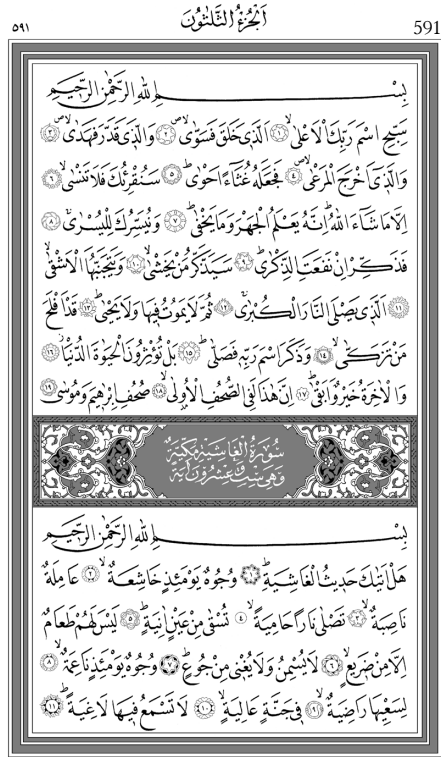 591
اَلْجُزْءُ الثَّلٰثُونَ
٥٩١
بِسْمِ اللّٰهِ الرَّحْمٰنِ الرَّحٖيمِ
سَبِّحِ اسْمَ رَبِّكَ الْاَعْلٰىۙ ﴿١﴾ اَلَّذٖى خَلَقَ فَسَوّٰىۙۖ ﴿٢﴾ وَالَّذٖى قَدَّرَ فَهَدٰىۙۖ ﴿٣﴾
وَالَّذٖٓى اَخْرَجَ الْمَرْعٰىۙۖ ﴿٤﴾ فَجَعَلَهُ غُثَٓاءً اَحْوٰىؕ ﴿٥﴾ سَنُقْرِئُكَ فَلَا تَنْسٰىۙ ﴿٦﴾
اِلَّا مَا شَٓاءَ اللّٰهُؕ اِنَّهُ يَعْلَمُ الْجَهْرَ وَمَا يَخْفٰىؕ ﴿٧﴾ وَنُيَسِّرُكَ لِلْيُسْرٰىۚ ﴿٨﴾
فَذَكِّرْ اِنْ نَفَعَتِ الذِّكْرٰىؕ ﴿٩﴾ سَيَذَّكَّرُ مَنْ يَخْشٰىۙ ﴿١٠﴾ وَيَتَجَنَّبُهَا الْاَشْقٰىۙ
﴿١١﴾ اَلَّذٖى يَصْلَى النَّارَ الْكُبْرٰىۚ ﴿١٢﴾ ثُمَّ لَا يَمُوتُ فٖيهَا وَلَا يَحْيٰىؕ ﴿١٣﴾ قَدْ اَفْلَحَ
مَنْ تَزَكّٰىۙ ﴿١٤﴾ وَذَكَرَ اسْمَ رَبِّهٖ فَصَلّٰىؕ ﴿١٥﴾ بَلْ تُؤْثِرُونَ الْحَيٰوةَ الدُّنْيَاۘ ﴿١٦﴾
وَالْاٰخِرَةُ خَيْرٌ وَاَبْقٰىؕ ﴿١٧﴾ اِنَّ هٰذَا لَفِى الصُّحُفِ الْاُولٰىۙ ﴿١٨﴾ صُحُفِ اِبْرٰهٖيمَ وَمُوسٰى ﴿١٩﴾
سُورَةُ الْغَاشِيَةِ مَكِّيَّةٌ
وَهِىَ سِتٌّ وَعِشْرُونَ اٰيَةً
بِسْمِ اللّٰهِ الرَّحْمٰنِ الرَّحٖيمِ
هَلْ اَتٰيكَ حَدٖيثُ الْغَاشِيَةِؕ ﴿١﴾ وُجُوهٌ يَوْمَئِذٍ خَاشِعَةٌۙ ﴿٢﴾ عَامِلَةٌ
نَاصِبَةٌۙ ﴿٣﴾ تَصْلٰى نَارًا حَامِيَةًۙ ﴿٤﴾ تُسْقٰى مِنْ عَيْنٍ اٰنِيَةٍؕ ﴿٥﴾ لَيْسَ لَهُمْ طَعَامٌ
اِلَّا مِنْ ضَرٖيعٍۙ ﴿٦﴾ لَا يُسْمِنُ وَلَا يُغْنٖى مِنْ جُوعٍؕ ﴿٧﴾ وُجُوهٌ يَوْمَئِذٍ نَاعِمَةٌۙ ﴿٨﴾
لِسَعْيِهَا رَاضِيَةٌۙ ﴿٩﴾ فٖى جَنَّةٍ عَالِيَةٍۙ ﴿١٠﴾ لَا تَسْمَعُ فٖيهَا لَاغِيَةًؕ ﴿١١﴾